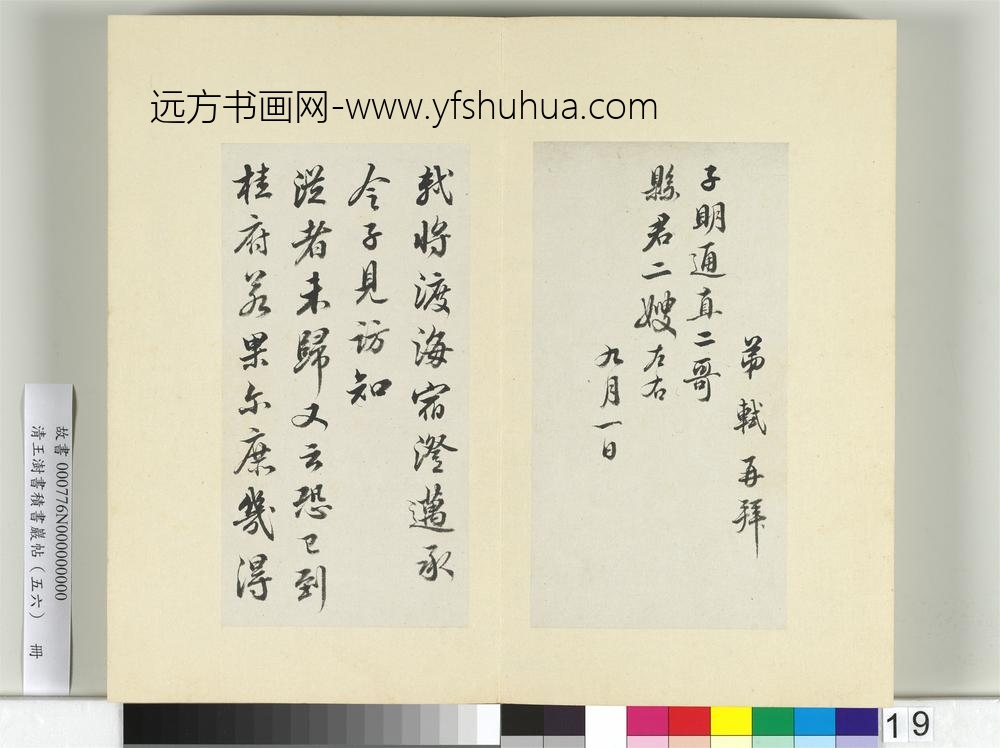 远方书画网-www.yfshuhua.com
弟軾再拜
子明通直二哥
縣君二嫂左右
九月一日
軾將渡海宿澄邁承
令子見訪知
從者未歸又云恐已到
桂府若果尓庶幾得
故書 000776N000000000
清王澍書積書巖帖（五六） 冊
19